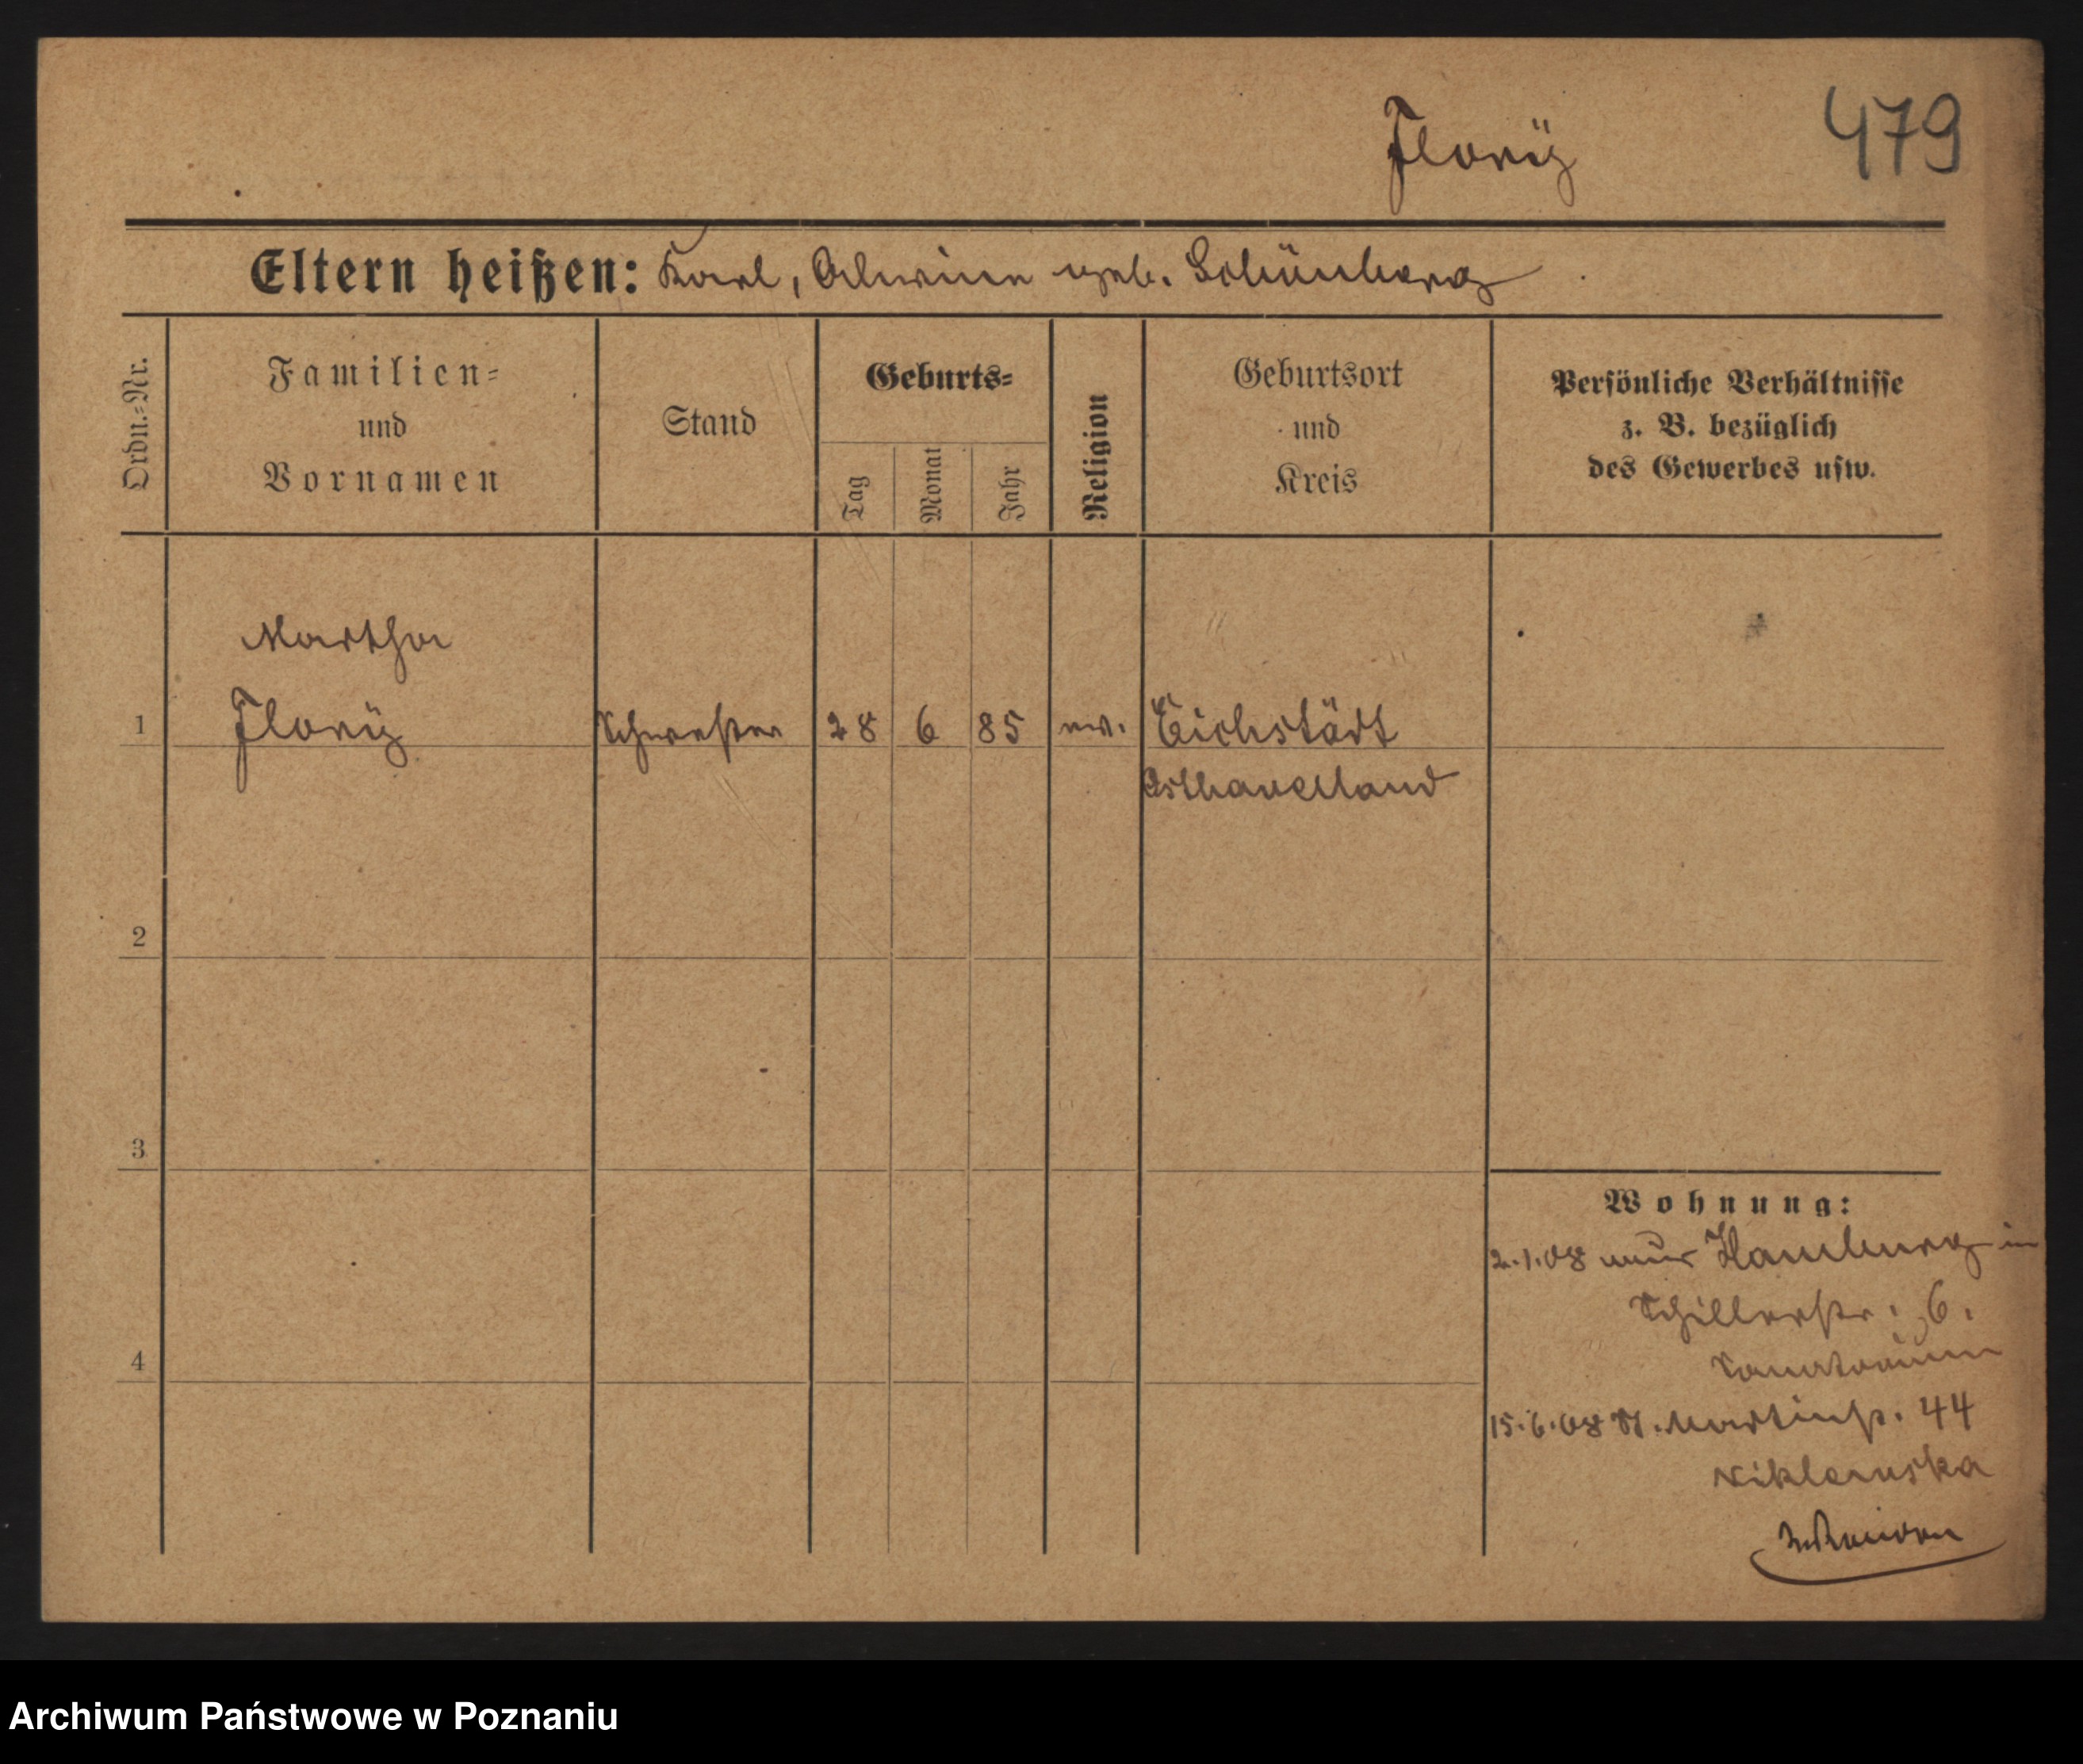 479
Eltern heißen: Karl, Alwine geb. Schönberg
Ordn.-Nr.
Familien-
und
Vornamen
Stand
Geburts-
Tag
Monat
Jahr
Religion
Geburtsort
und
Kreis
Persönliche Verhältnisse
z. B. bezüglich
des Gewerbes usw.
Martha
1 Schwester 28 6 85 ev. Eichstädt
Osthavelland
2
3
Wohnung:
2.1.08 Hamburg in
Schillerstr. 6.
4
Sanatorium
15.6.08 St. Martinstr. 44
Archiwum Państwowe w Poznaniu